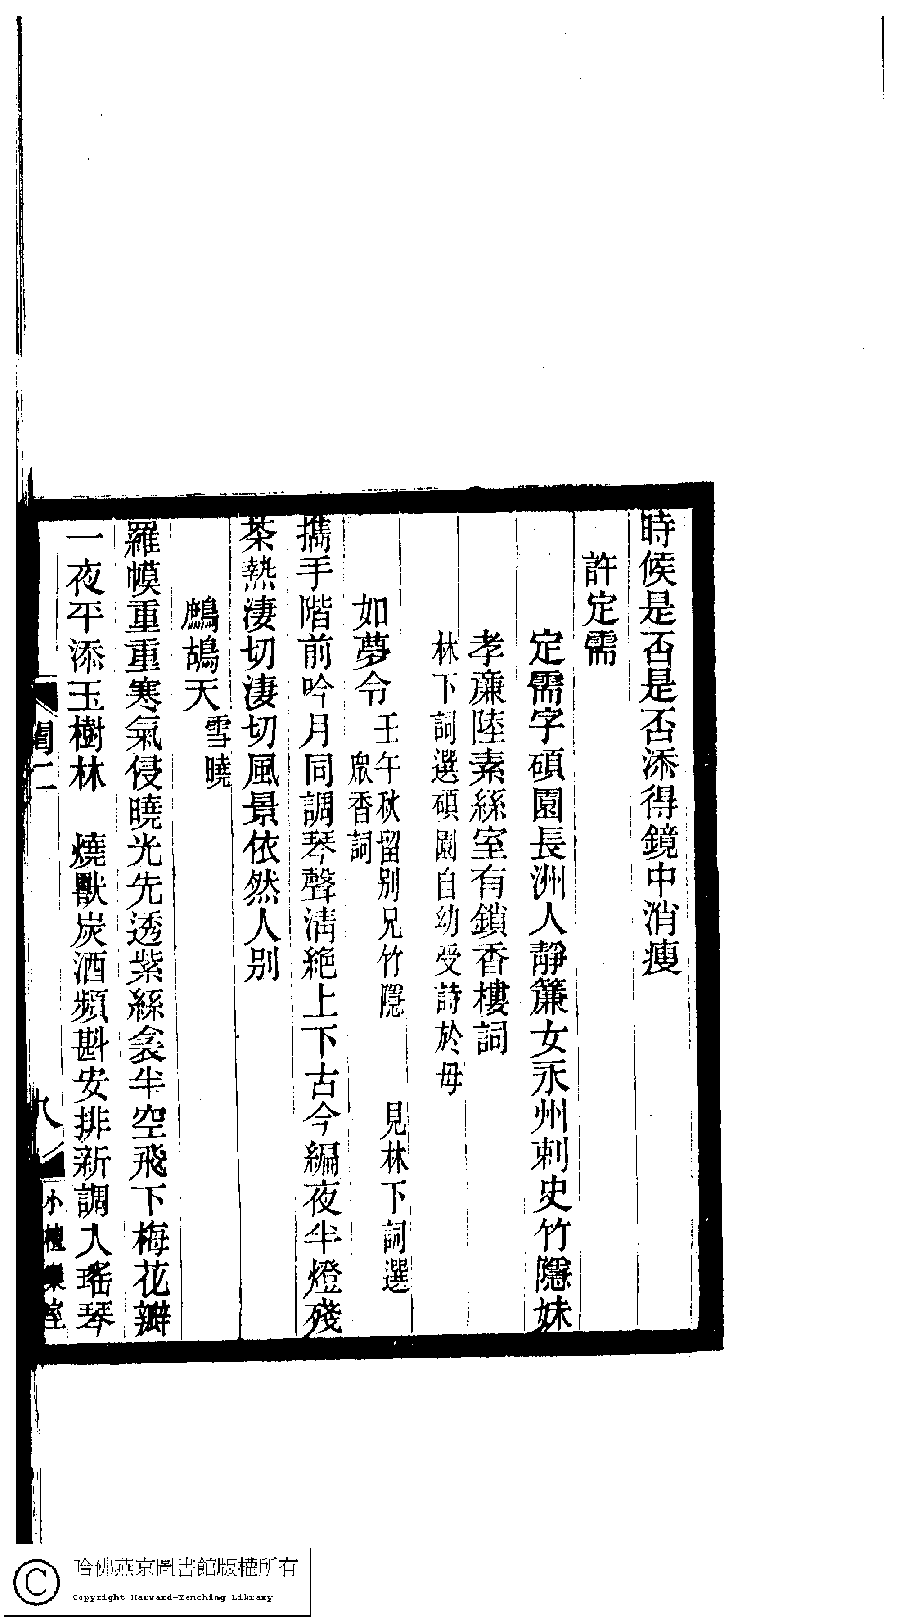 時候是否是否添得鏡中消瘦
許定需
定需字碩園長洲人靜簾女永州刺史竹隱妹
孝廉陸素絲室有鎖香樓詞
林下詞選碩園自幼受詩於母
如夢令 壬午秋留別兄竹隱 見林下詞選
眾香詞
攜手階前吟月同調琴聲清絶上下古今編夜半燈殘
茶熱淒切淒切風景依然人别
鷓鴣天 雪曉
羅幙重重寒氣侵曉光先透紫絲衾半空飛下梅花瓣
一夜平添玉樹林 燒獸炭酒頻斟安排新調入瑤琴
閏二
九
小檀欒室
哈佛燕京圖書館版權所有
Copyright Harvard-Yenching Library